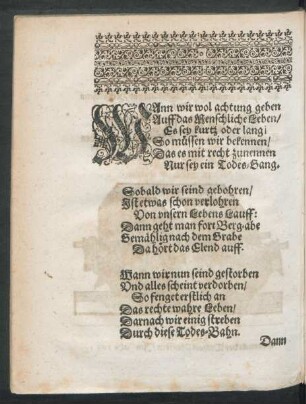 WAnn wir wol achtung geben
Auff das Menschliche Leben/
Es sey kurtz oder lang;
So müssen wir bekennen/
Das es mit recht zunennen
Nur sey ein Todes-Gang.
Sobald wir seind gebohren/
Ist etwas schon verlohren
Von vnsern Lebens Lauff:
Dann geht man fort Berg-abe
Gemählig nach dem Grabe
Da hört das Elend auff.
Wann wir nun seind gestorben
Vnd alles scheint verdorben/
So fenget erstlich an
Das rechte wahre Leben/
Darnach wir einig streben
Durch diese Todes-Bahn.
Dann